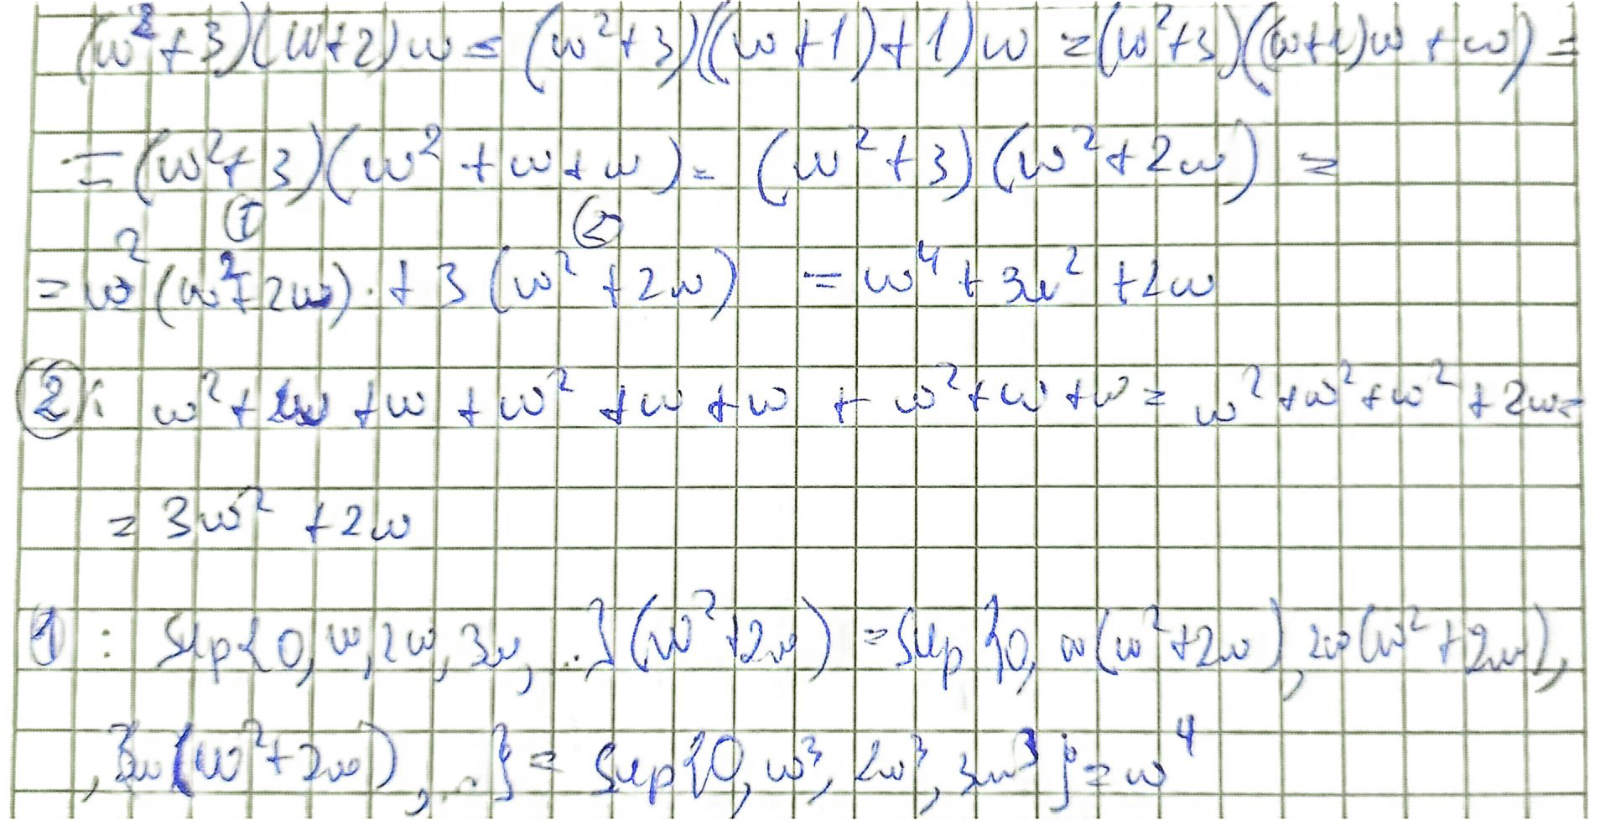 (ω²+3)(ω+2)ω = (ω²+3)((ω+1)+1)ω = (ω²+3)((ω+1)ω+ω) =
= (ω²+3)(ω²+ω+ω) = (ω²+3)(ω²+2ω) =
① ②
= ω²(ω²+2ω) + 3(ω²+2ω) = ω⁴+3ω²+2ω
②: ω²+ω+ω+ω²+ω+ω+ω²+ω+ω = ω²+ω²+ω²+2ω =
= 3ω²+2ω
①: sup{0, ω, 2ω, 3ω, ...}(ω²+2ω) = sup{0, ω(ω²+2ω), 2ω(ω²+2ω),
, 3ω(ω²+2ω), ...} = sup{0, ω³, 2ω³, 3ω³} = ω⁴